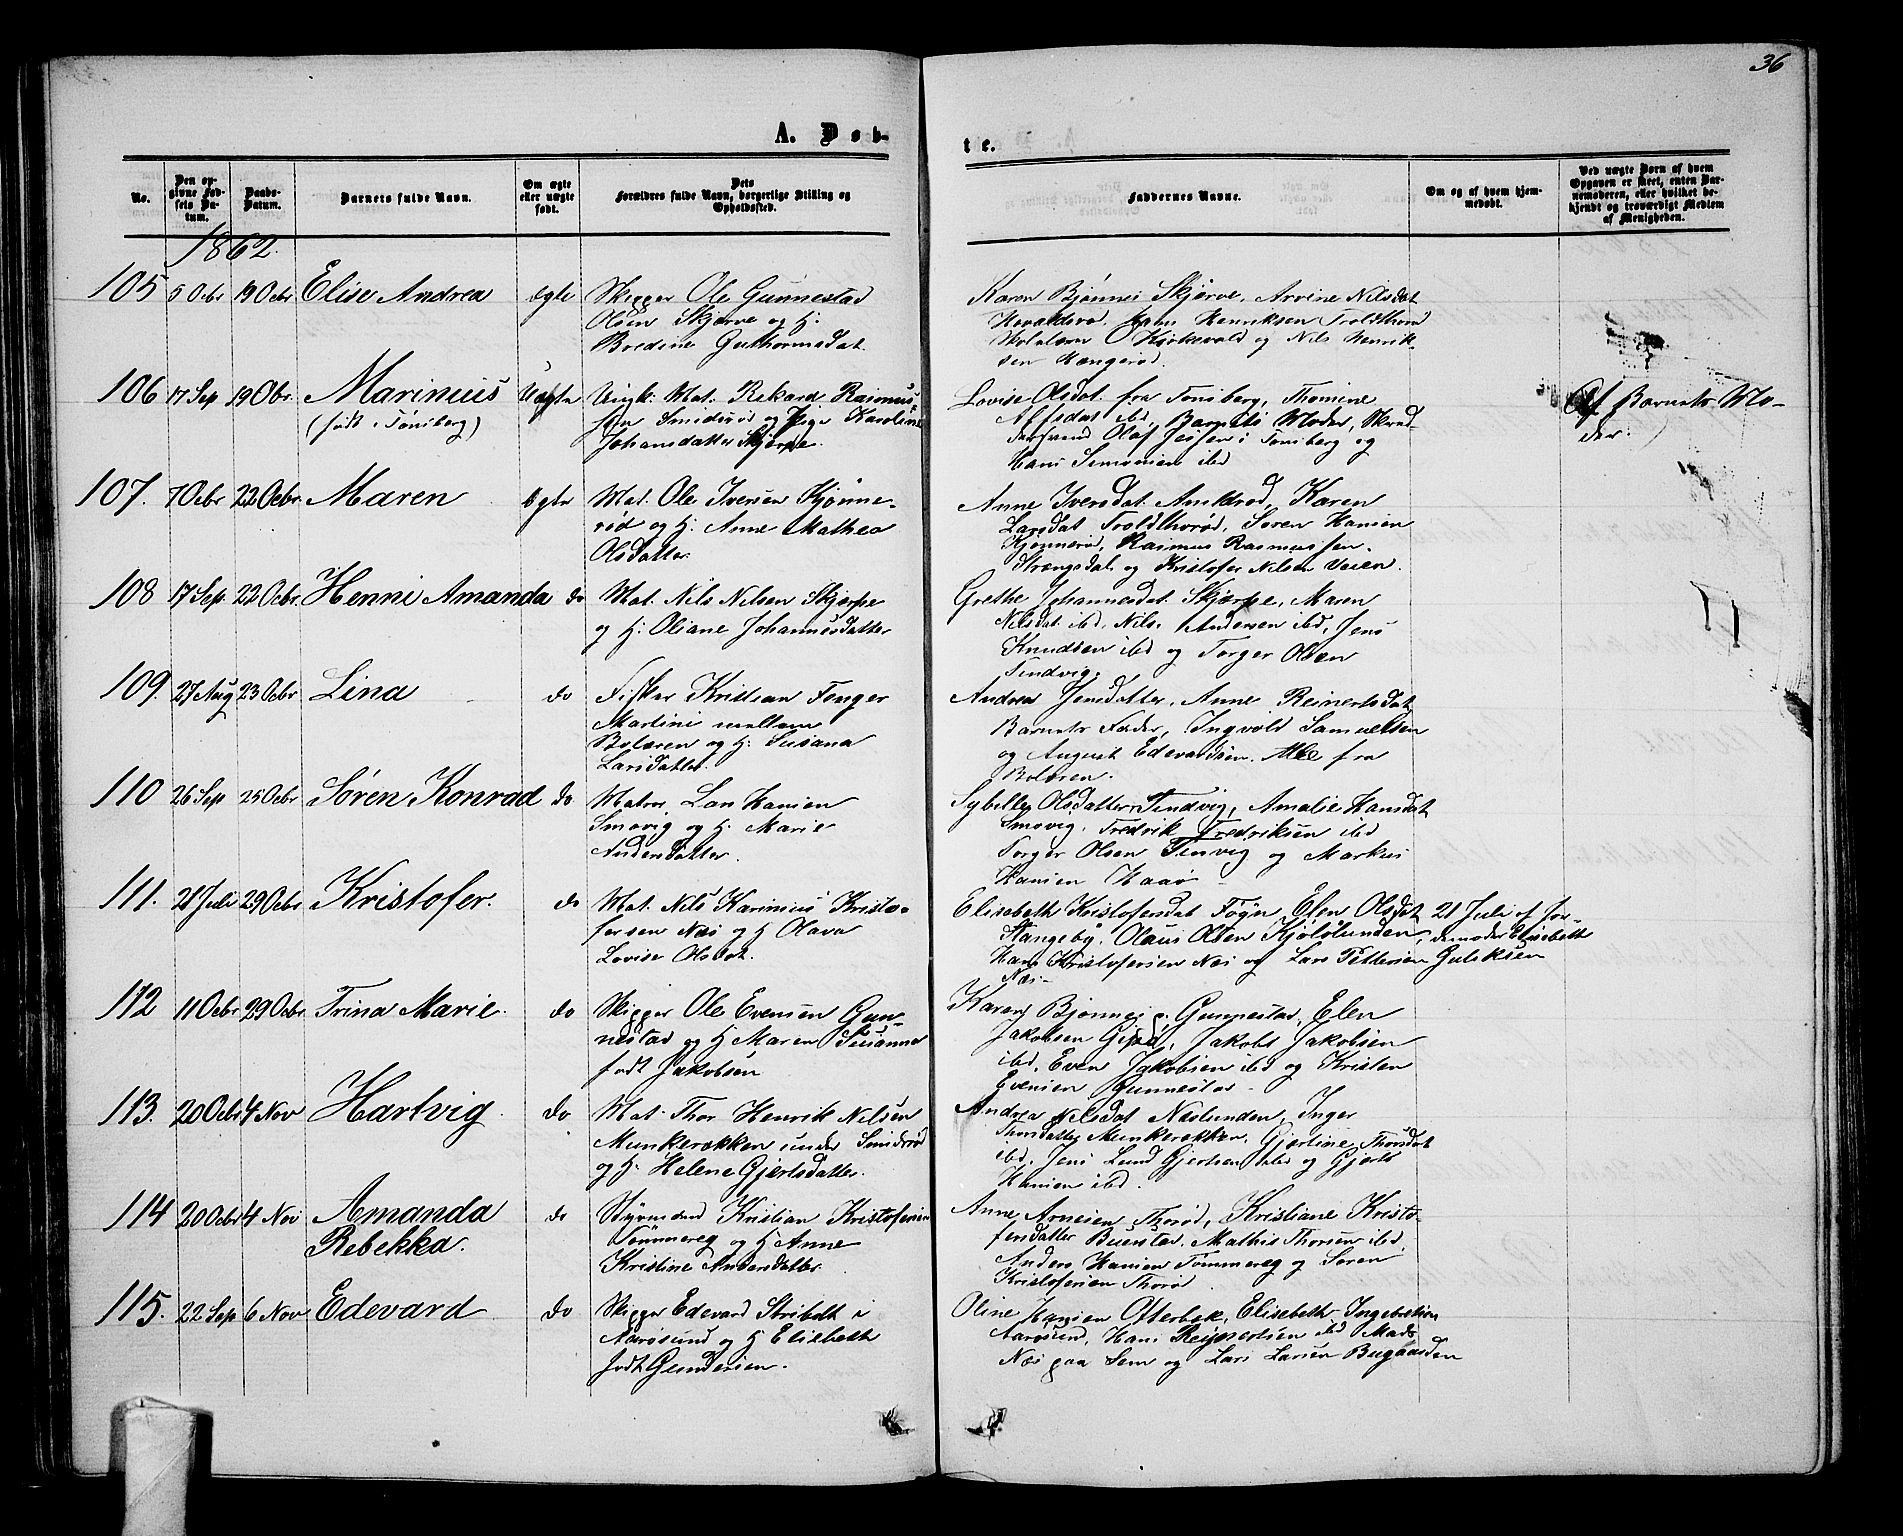 36
A. Døb-
te.
No.
Den op-
givne Fød-
sels Da-
tum.
Daabs-
Datum.
Barnets fulde Navn.
Om ægte
eller uægte
født.
Dets
Forældres fulde Navn, borgerlige Stilling og
Opholdsted.
Faddernes Navne.
Om og af hvem hjem-
medøbt.
Ved uægte Børn af hvem
Opgaven er skeet, enten Bar-
nemoderen, eller hvilket be-
kjendt og troværdigt Medlem
af Menigheden.
1862.
105 5 Ocbr 19 Ocbr Elise Andrea ægte Skipper Ole Gunnestad
Olsen Skjerve og H.
Bredine Guthormsdat.
Karen Bjønnes Skjerve, Arvine Nilsdat
Henriksen Troldthorød
Kirkevold og Nils Henrik-
sen Hængerød.
106 17 Sep 19 Obr. Marinius Uægte Ungk. Mat. Rekard Rasmus-
(født i Tønsberg) sen Smidsrød og Pige Karoline
Johansdatter Skjerpe.
Lovise Olsdat fra Tønsberg, Thomine
ibd, Barnets Moder, Skræd-
dersvend Olaf Jessen i Tønsberg og
Hans Simonsen ibd
Af Barnets Mo-
der.
107. 7 Ocbr 22 Ocbr Maren ægte Mat. Ole Iversen Kjønne-
rød og H. Anne Mathea
Olsdatter.
Anne Iversdat Amkrød, Karen
Larsdat Troldthorød, Søren Hansen
Kjønnerød, Rasmus Rasmussen
Strængsdal og Kristofer Nilsen Veien.
108 17 Sep. 22 Ocbr. Henni Amanda do Mat. Nils Nilsen Skjerpe
og H. Oliane Johannesdatter
Grethe Johannesdat Skjerpe, Maren
Nilsdat ibd, Nils Andersen ibd, Jens
Knudsen ibd og Torger Olsen
Tendvig.
109. 27 Aug 23 Ocbr Lina do Fisker Kristian Fenger
Martini mellem
Bolæren og H. Susana
Larsdatter.
Andrea Jensdatter, Anne Reinertsdat
Barnets Fader, Ingvold Samuelsen
og August Edevardsen. Alle fra
Bolæren.
110 26 Sep 25 Ocbr Søren Konrad do Matros Lars Hansen
Smovig og H. Marie
Andersdatter.
Sybille Olsdatter Tendvig, Amalie Hansdat
Smovig, Fredrik Fredriksen ibd
Torger Olsen Tenvig og Markus
Hansen Haaø
111. 21 Juli 29 Ocbr Kristofer. do Mat. Nils Karinius Kristo-
fersen Næs og H Olava
Lovise Olsdat.
Elisabeth Kristofersdat Føyn, Elen Olsdat
Stangeby, Olaus Olsen Kjølølunden,
Hans Kristofersen Næs og Lars Pettersen
Næs
21 Juli af Jor-
demoder Elisabeth
Gulliksen
112 11 Ocbr 29 Ocbr. Trina Marie. do Skipper Ole Evensen Gun-
nestad og H Maren Susanne
født Jakobsen
Karen Bjønnes Gunnestad, Elen
Jakobsen Jakobs Jakobsen
ibd, Even Jakobsen ibd og Kristen
Evensen Gunnestad
113. 20 Ocbr 4 Nov Hartvig. do Mat. Thor Henrik Nilsen
Munkerekken under Smidsrød
og H. Helene Gjertsdatter.
Andrea Nilsdat Næslunden, Inger
Thorsdatter Munkerekken, Gjertine Thorsdat
ibd, Jens Lund Gjertsen ibd og Gjert
Hansen ibd.
114 20 Ocbr 4 Nov Amanda
Rebekka. do Styrmand Kristian Kristofersen
Tømmereg og H Anne
Kristine Andersdatter.
Anne Arnesen Thorød, Kristiane Kristo-
fersdatter Buerstad, Mathis Thorsen ibd,
Anders Hansen Tømmereg og Søren
Kristofersen Thorød
115. 22 Sep 6 Nov Edevard do Skipper Edevard Stribolt i
Aarøsund og H Elisebeth
født Gundersen.
Oline Hansen Ofterbek, Elisebeth Ingebretsen
Aarøsund, Hans Reinertsen ibd Mads
Næs paa Sem og Lars Larsen Bugaarden